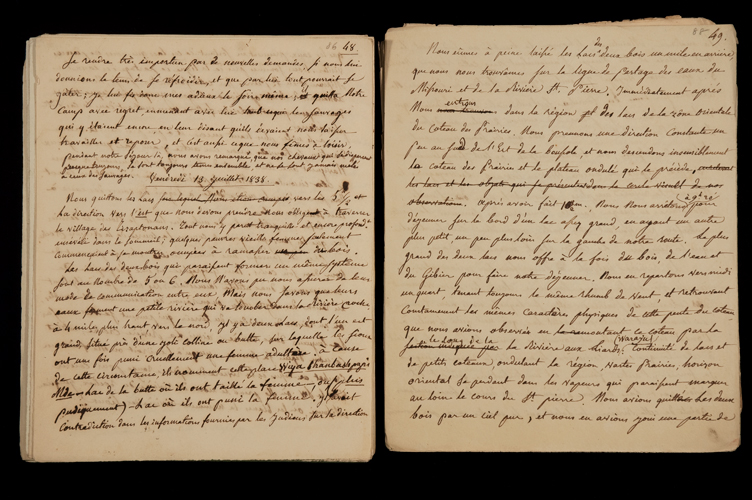 48
Je reviens très important par de nouvelles demandes. Je nous lui
donnions le tems de se refroidir, et que par lui tout pourrait se
gâter; je lui fis donc mes adieux le soir même, et quitta Notre
Camp avec regret emmenant avec lui les sauvages
qui y étaient encore en leur disant qu'ils devaient nous laisser
travailler et reposer, et c'est enfin ce que nous fîmes à loisir,
pendant notre séjour ici, nous avons remarqué que nos chevaux
toujours ensemble et ne se sont jamais mêlés
à ceux des Sauvages. Vendredi 13 Juillet 1838.
Nous quittons les lacs vers les 5 h
la direction vers l'est que nous devions prendre Nous obligea à traverser
le village des Sissiptonans. Tout nous y parut tranquille et encore profond.
enseveli dans le sommeil; quelques pauvres vieilles femmes, seulement
commencent à se montrer, occupées à ramasser du bois.
Les lacs des deux bois qui paraissent former un même système
sont au nombre de 5 ou 6. Nous n'avons pu nous assurer de leur
mode de communication entre eux. Mais nous savons que leurs
eaux forment une petite rivière qui va tomber dans la Rivière croche
à 4 miles plus haut vers le nord. Il y a deux lacs, dont l'un est
grand, situé près d'une jolie colline ou butte, sur laquelle les Sioux
ont un jour puni cruellement une femme adultère. à cause
de cette circonstance ils nomment cette place Wiya
Mde - lac de la butte où ils ont taillé la femme, (ou plus
pudiquement) - Lac où ils ont puni la femme. Il y avait
Contradiction dans les informations fournies par les Indiens sur la direction
49.
Nous eûmes à peine laissé les lacs des deux bois un mile en arrière,
que nous nous trouvâmes sur la ligne de partage des eaux du
Missouri et de la Rivière St. Pierre. Immédiatement après
Nous entrons dans la région des lacs de la zône orientale
du Coteau des Prairies. Nous prenons une direction constante un
peu au sud de l'Est de la boussole, et nous descendons insensiblement
le coteau des Prairies et le plateau ondulé qui le précède,
les lacs et les objets qui se présentent dans le cercle visuel de nos
observations. Après avoir fait 10 m. Nous Nous arrêtons pour
déjeuner sur le bord d'un lac assez grand, en ayant un autre
plus petit, un peu plus loin sur la gauche de notre route. Le plus
grand des deux lacs nous offre à la fois du bois, de l'eau et
du Gibier pour faire notre déjeuner. Nous en repartons vers midi
un quart, tenant toujours le même rhumb de vent, et retrouvant
constamment les mêmes caractères physiques de cette pente du coteau
que nous avions observés en remontant le coteau par la
le long de la Rivière aux liards, (Waraju) Continuité de lacs et
de petits coteaux, ondulant la région, vastes Prairies, horizon
oriental se perdant dans les vapeurs qui paraissent marquer
au loin le cours du St. pierre. Nous avions quitté les lacs deux
bois par un ciel pur, et nous en avions joui une partie de